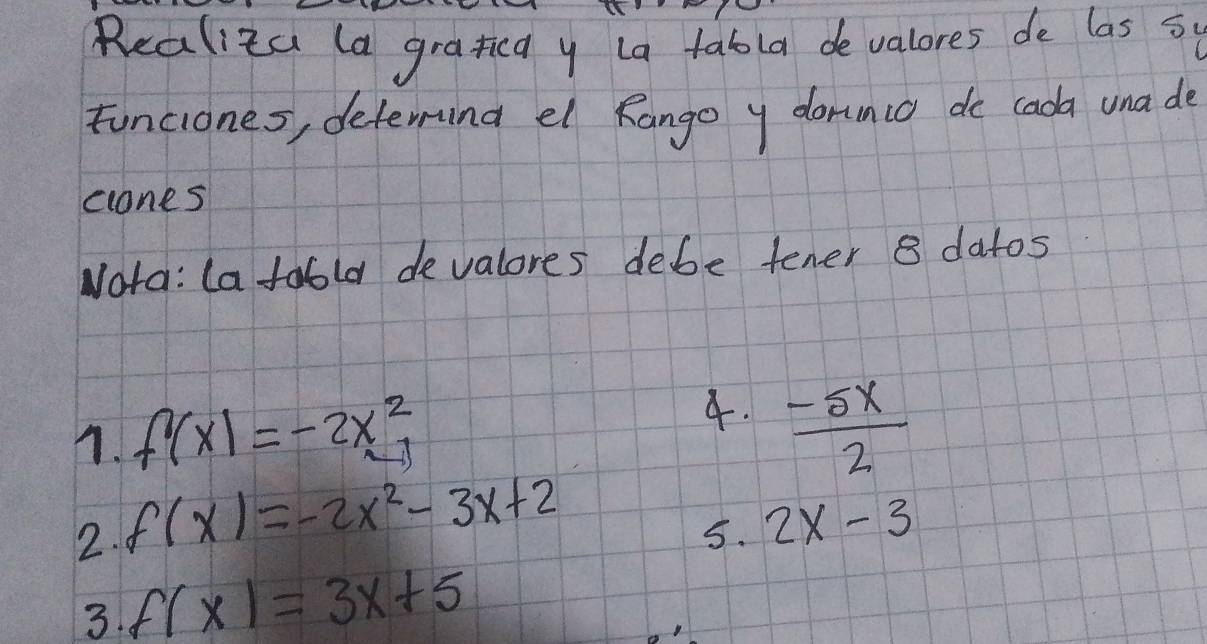 Realiza la grafica y la tabla de valores de las su
funciones, determina el Rango y dominio de cada una de
ciones
Nota: la tabla de valores debe tener 8 datos
1. f(x) = -2x²
2. f(x) = -2x² - 3x + 2
3. f(x) = 3x + 5
4. -5x/2
5. 2x - 3